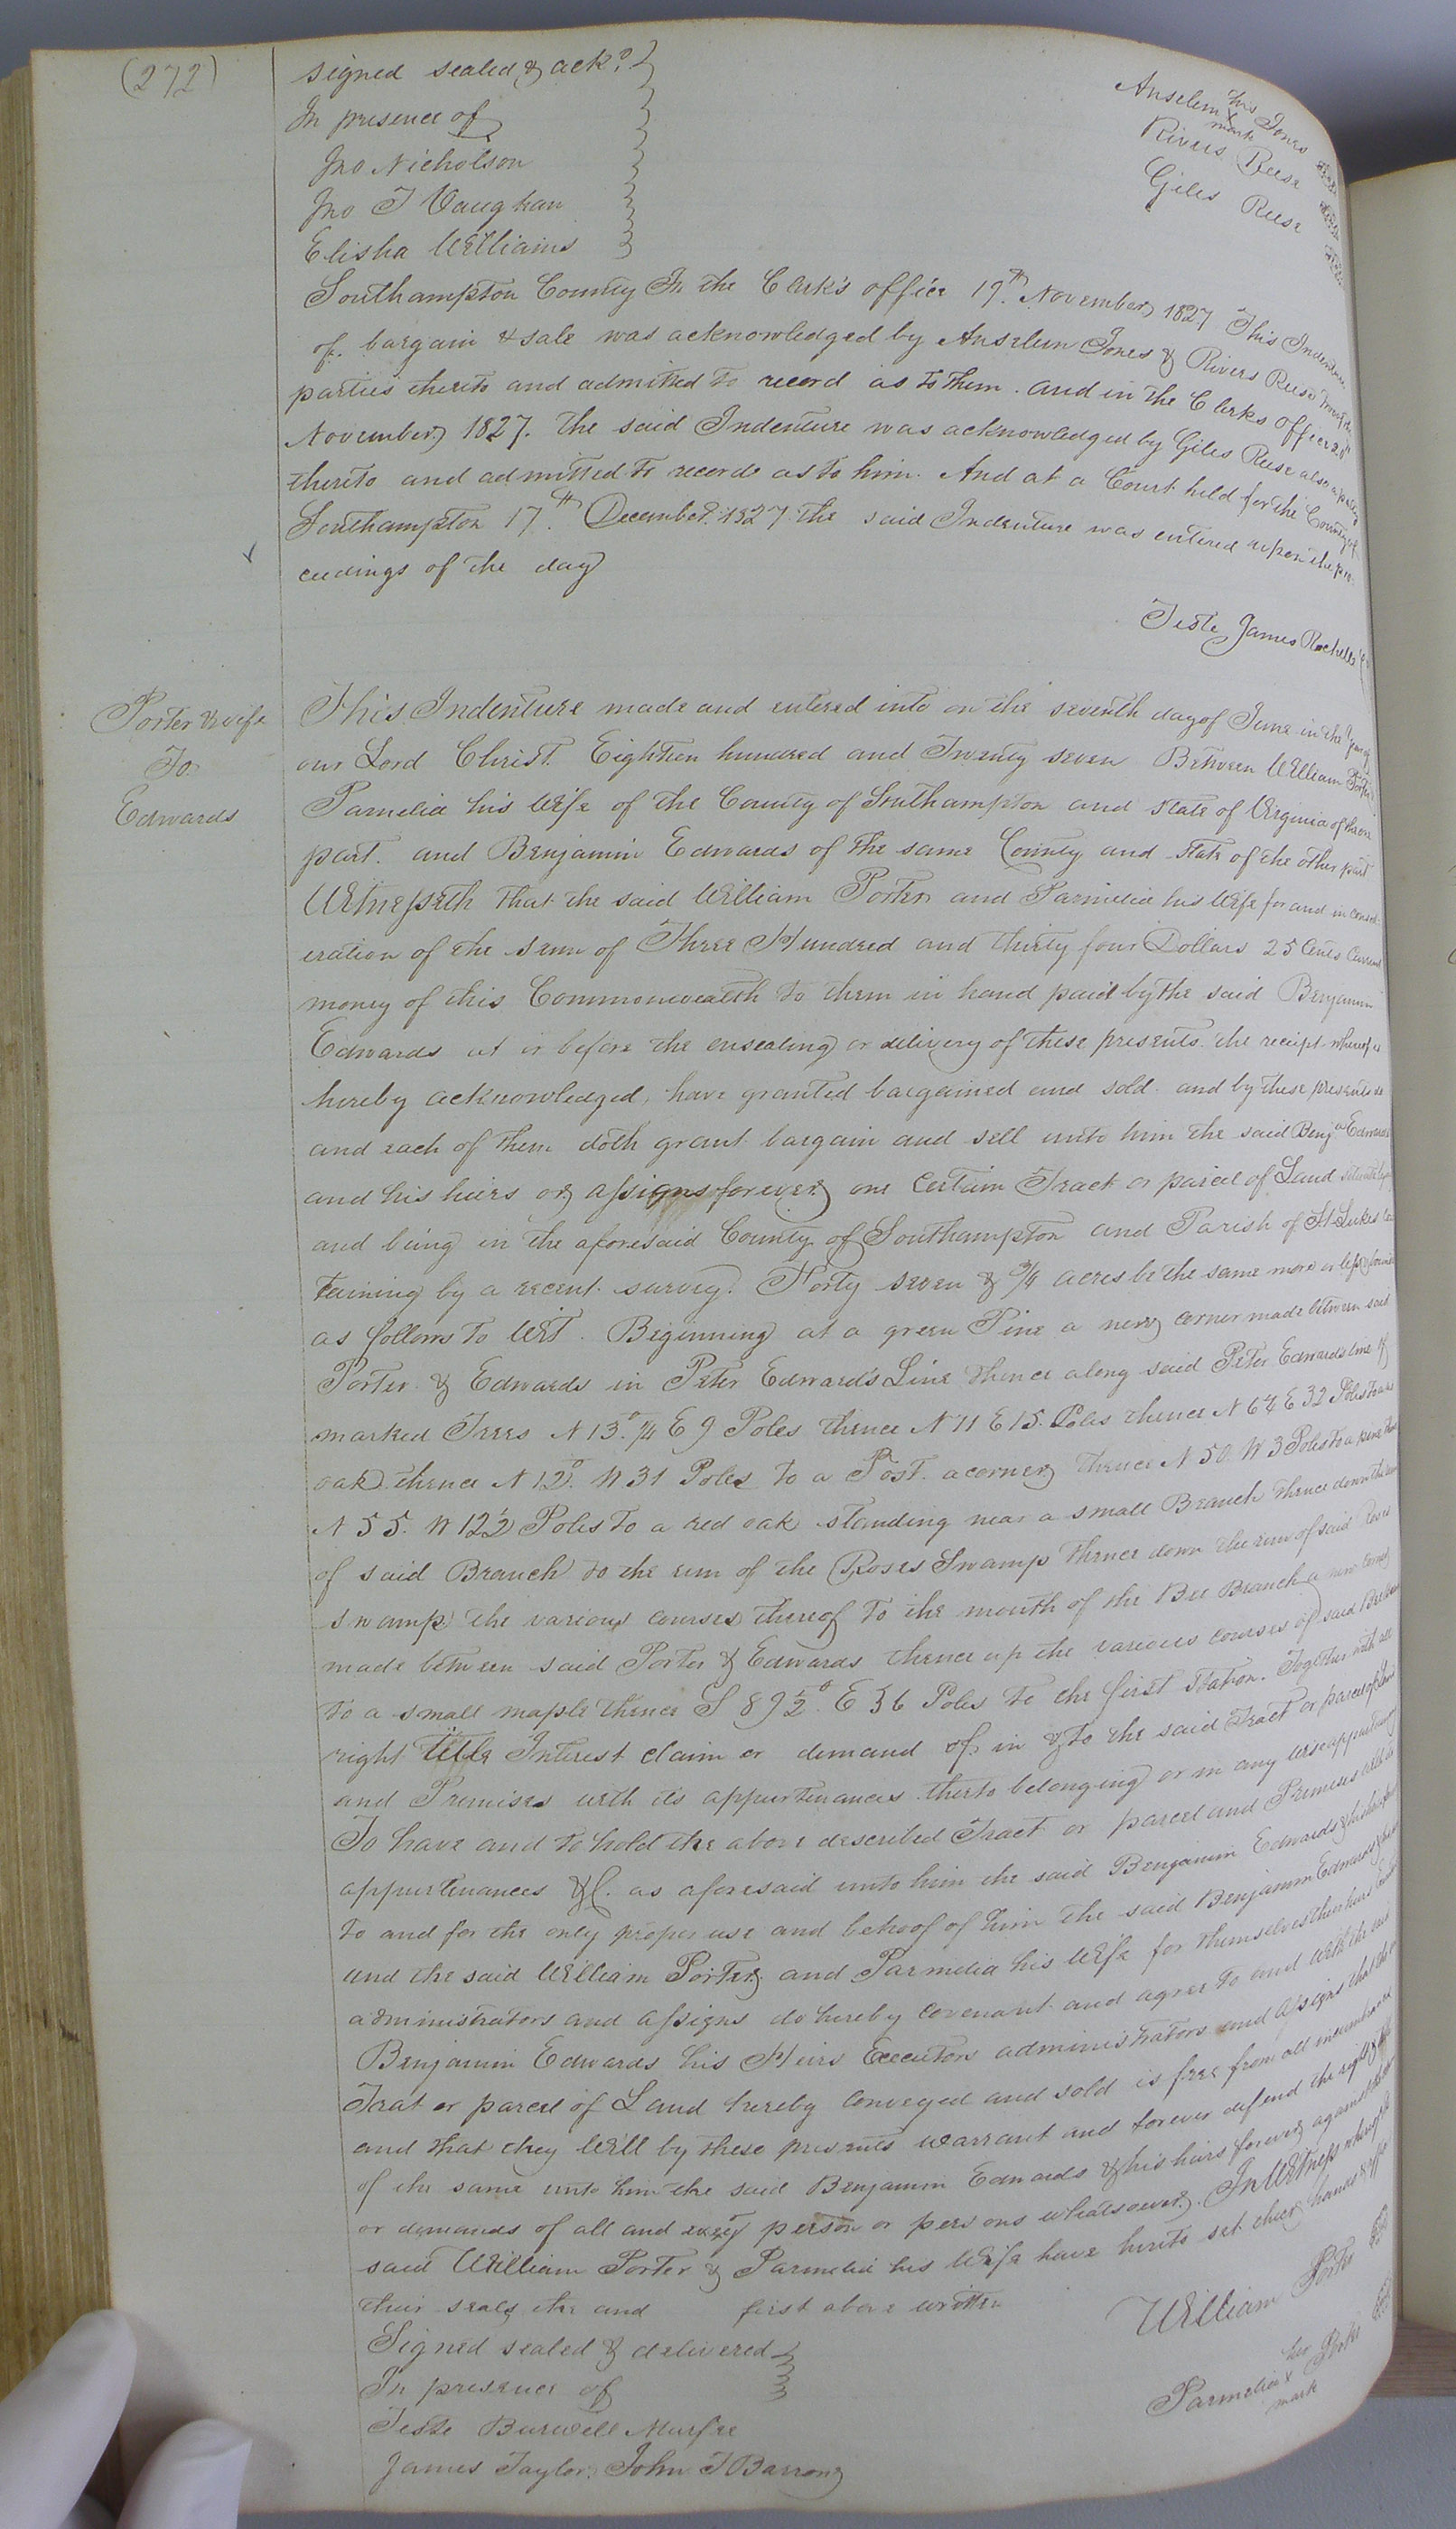 (272)
signed sealed & ackd
In presence of
Jno Nicholson
Jno T Vaughan
Elisha Williams
Anselem his Jones
mark
Rivers Reese
Giles Reese
Southampton County In the Clerk's office 19th November 1827 This Indenture
of bargain & sale was acknowledged by Anselem Jones & Rivers Reese two of the
parties thereto and admitted to record as to them. and in the Clerks office 20th
November 1827. the said Indenture was acknowledged by Giles Reese also a party
thereto and admitted to record as to him. And at a Court held for the County of
Southampton 17th December 1827 the said Indenture was entered upon the pro-
ceedings of the day
Teste James Rochelle
Porter & wife
To
Edwards
This Indenture made and entered into on the seventh day of June in the year of
our Lord Christ Eighteen hundred and Twenty seven Between William Porter
Parmelia his Wife of the County of Southampton and State of Virginia of the one
part. and Benjamin Edwards of the same County and State of the other part
Witnesseth that the said William Porter and Parmelia his Wife for and in consid-
eration of the sum of Three Hundred and thirty four Dollars 25 Cents Current
money of this Commonwealth to them in hand paid by the said Benjamin
Edwards at or before the ensealing or delivery of these presents the receipt whereof is
hereby acknowledged, have granted bargained and sold and by these presents do
and each of them doth grant bargain and sell unto him the said Benja Edwards
and his heirs or assigns forever one Certain Tract or parcel of Land situate
and being in the aforesaid County of Southampton and Parish of St Lukes Con
taining by a recent survey. Forty seven & 3/4 acres be the same more or less & bounded
as follows to Wit. Beginning at a green Pine a new corner made between said
Porter & Edwards in Peter Edward's Line thence along said Peter Edwards line of
marked Trees N 13° 1/4 E 9 Poles thence N 11 E 15 Poles thence N 64 E 32 Poles to a
oak thence N 12° W 31 Poles to a Post. a corner thence N 50. W 3 Poles to a pine thence
N 55. W 12½ Poles to a red oak standing near a small Branch thence down the
of said Branch to the run of the Roses Swamp thence down the run of said Roses
swamp the various courses thereof to the mouth of the Bee Branch a new corner
made between said Porter & Edwards thence up the various courses of said Bee Branch
to a small maple thence S 89½° E 36 Poles to the first Station. Together with all
right title Interest claim or demand of, in & to the said Tract or parcel of Land
and Premises with its appurtenances thereto belonging or in any wise appertaining
To have and to hold the above described Tract or parcel and Premises with its
appurtenances &C. as aforesaid unto him the said Benjamin Edwards & his heirs
to and for the only proper use and behoof of him the said Benjamin Edwards &
and the said William Porter and Parmelia his Wife for themselves their heirs
administrators and assigns do hereby covenant and agree to and with the said
Benjamin Edwards his Heirs Executors administrators and assigns that the
Trat or parcel of Land hereby conveyed and sold is free from all incumbrance
and that they Will by these presents warrant and forever defend the right & title
of the same unto him the said Benjamin Edwards & his heirs forever against the
or demands of all and every person or persons whatsoever. In Witness whereof the
said William Porter & Parmelia his Wife have hereto set their hands & aff
their seals the and first above written
Signed sealed & delivered
In presence of
Teste Burwell Murfee
James Taylor. John T Barrow
William Porter
Parmelia her Porter
mark